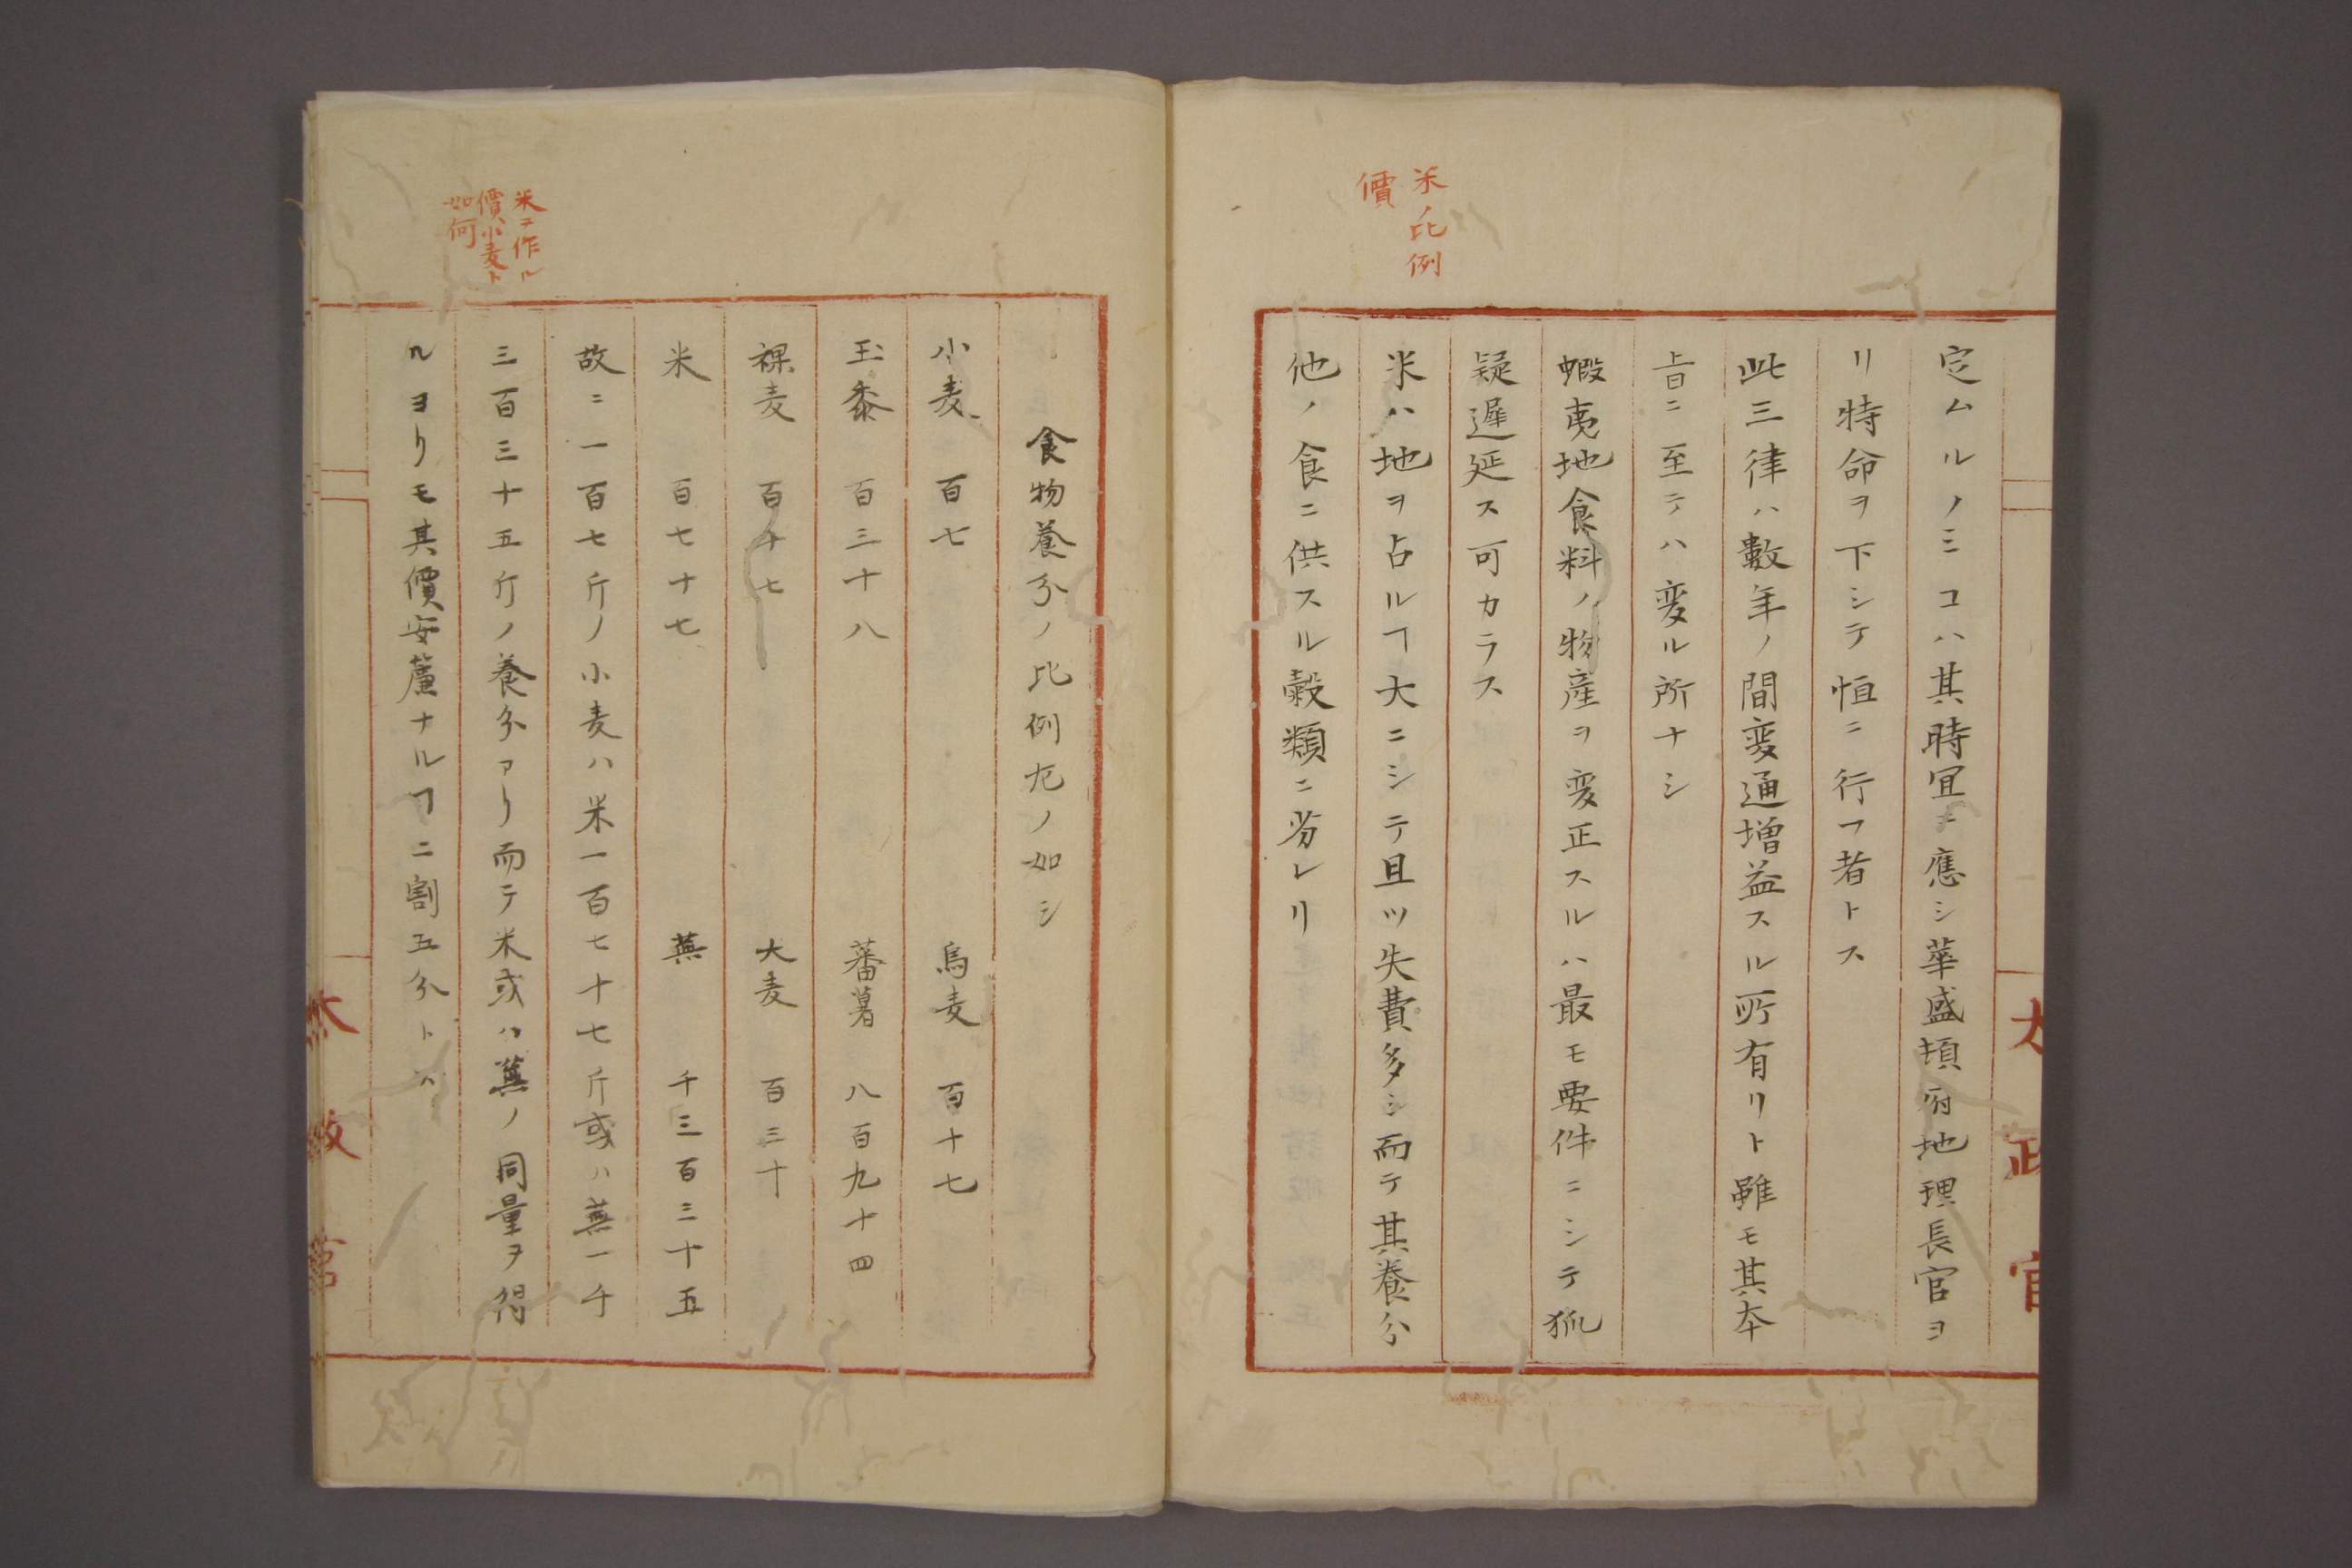 定ムルノミコハ其時宜ニ應シ華盛頓府地理長官ヨ
リ特命ヲ下シテ恒ニ行フ者トス
此三律ハ數年ノ間変通増益スル所有リト雖モ其本
旨ニ至テハ変ル所ナシ
蝦夷地食料ノ物産ヲ変正スルハ最モ要件ニシテ狐
疑遲延ス可カラス
米ノ比例
價
米ハ地ヲ占ルヿ大ニシテ且ツ失費多シ而テ其養分
他ノ食ニ供スル穀類ニ劣レリ
太政官
食物養分ノ比例左ノ如シ
小麦 百七 烏麦 百十七
玉黍 百三十八 蕃薯 八百九十四
裸麦 百十七 大麦 百三十
米 百七十七 蕪 千三百三十五
故ニ一百七斤ノ小麦ハ米一百七十七斤或ハ蕪一千
米ニ作ル
價小麦ト
如何
三百三十五斤ノ養分アリ而テ米或ハ蕪ノ同量ヲ得
ルヨリモ其價安簾ナルヿ二割五分トス
太政官